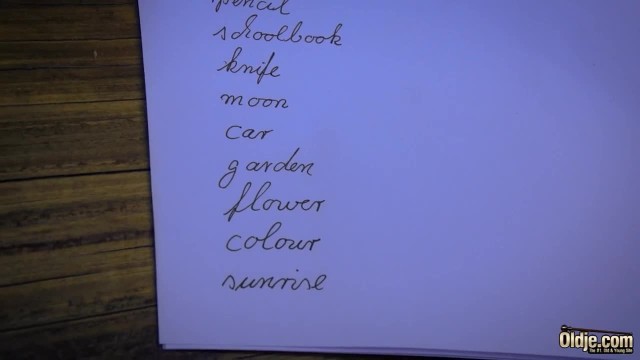 pencil
schoolbook
knife
moon
car
garden
flower
colour
sunrise
Oldje.com